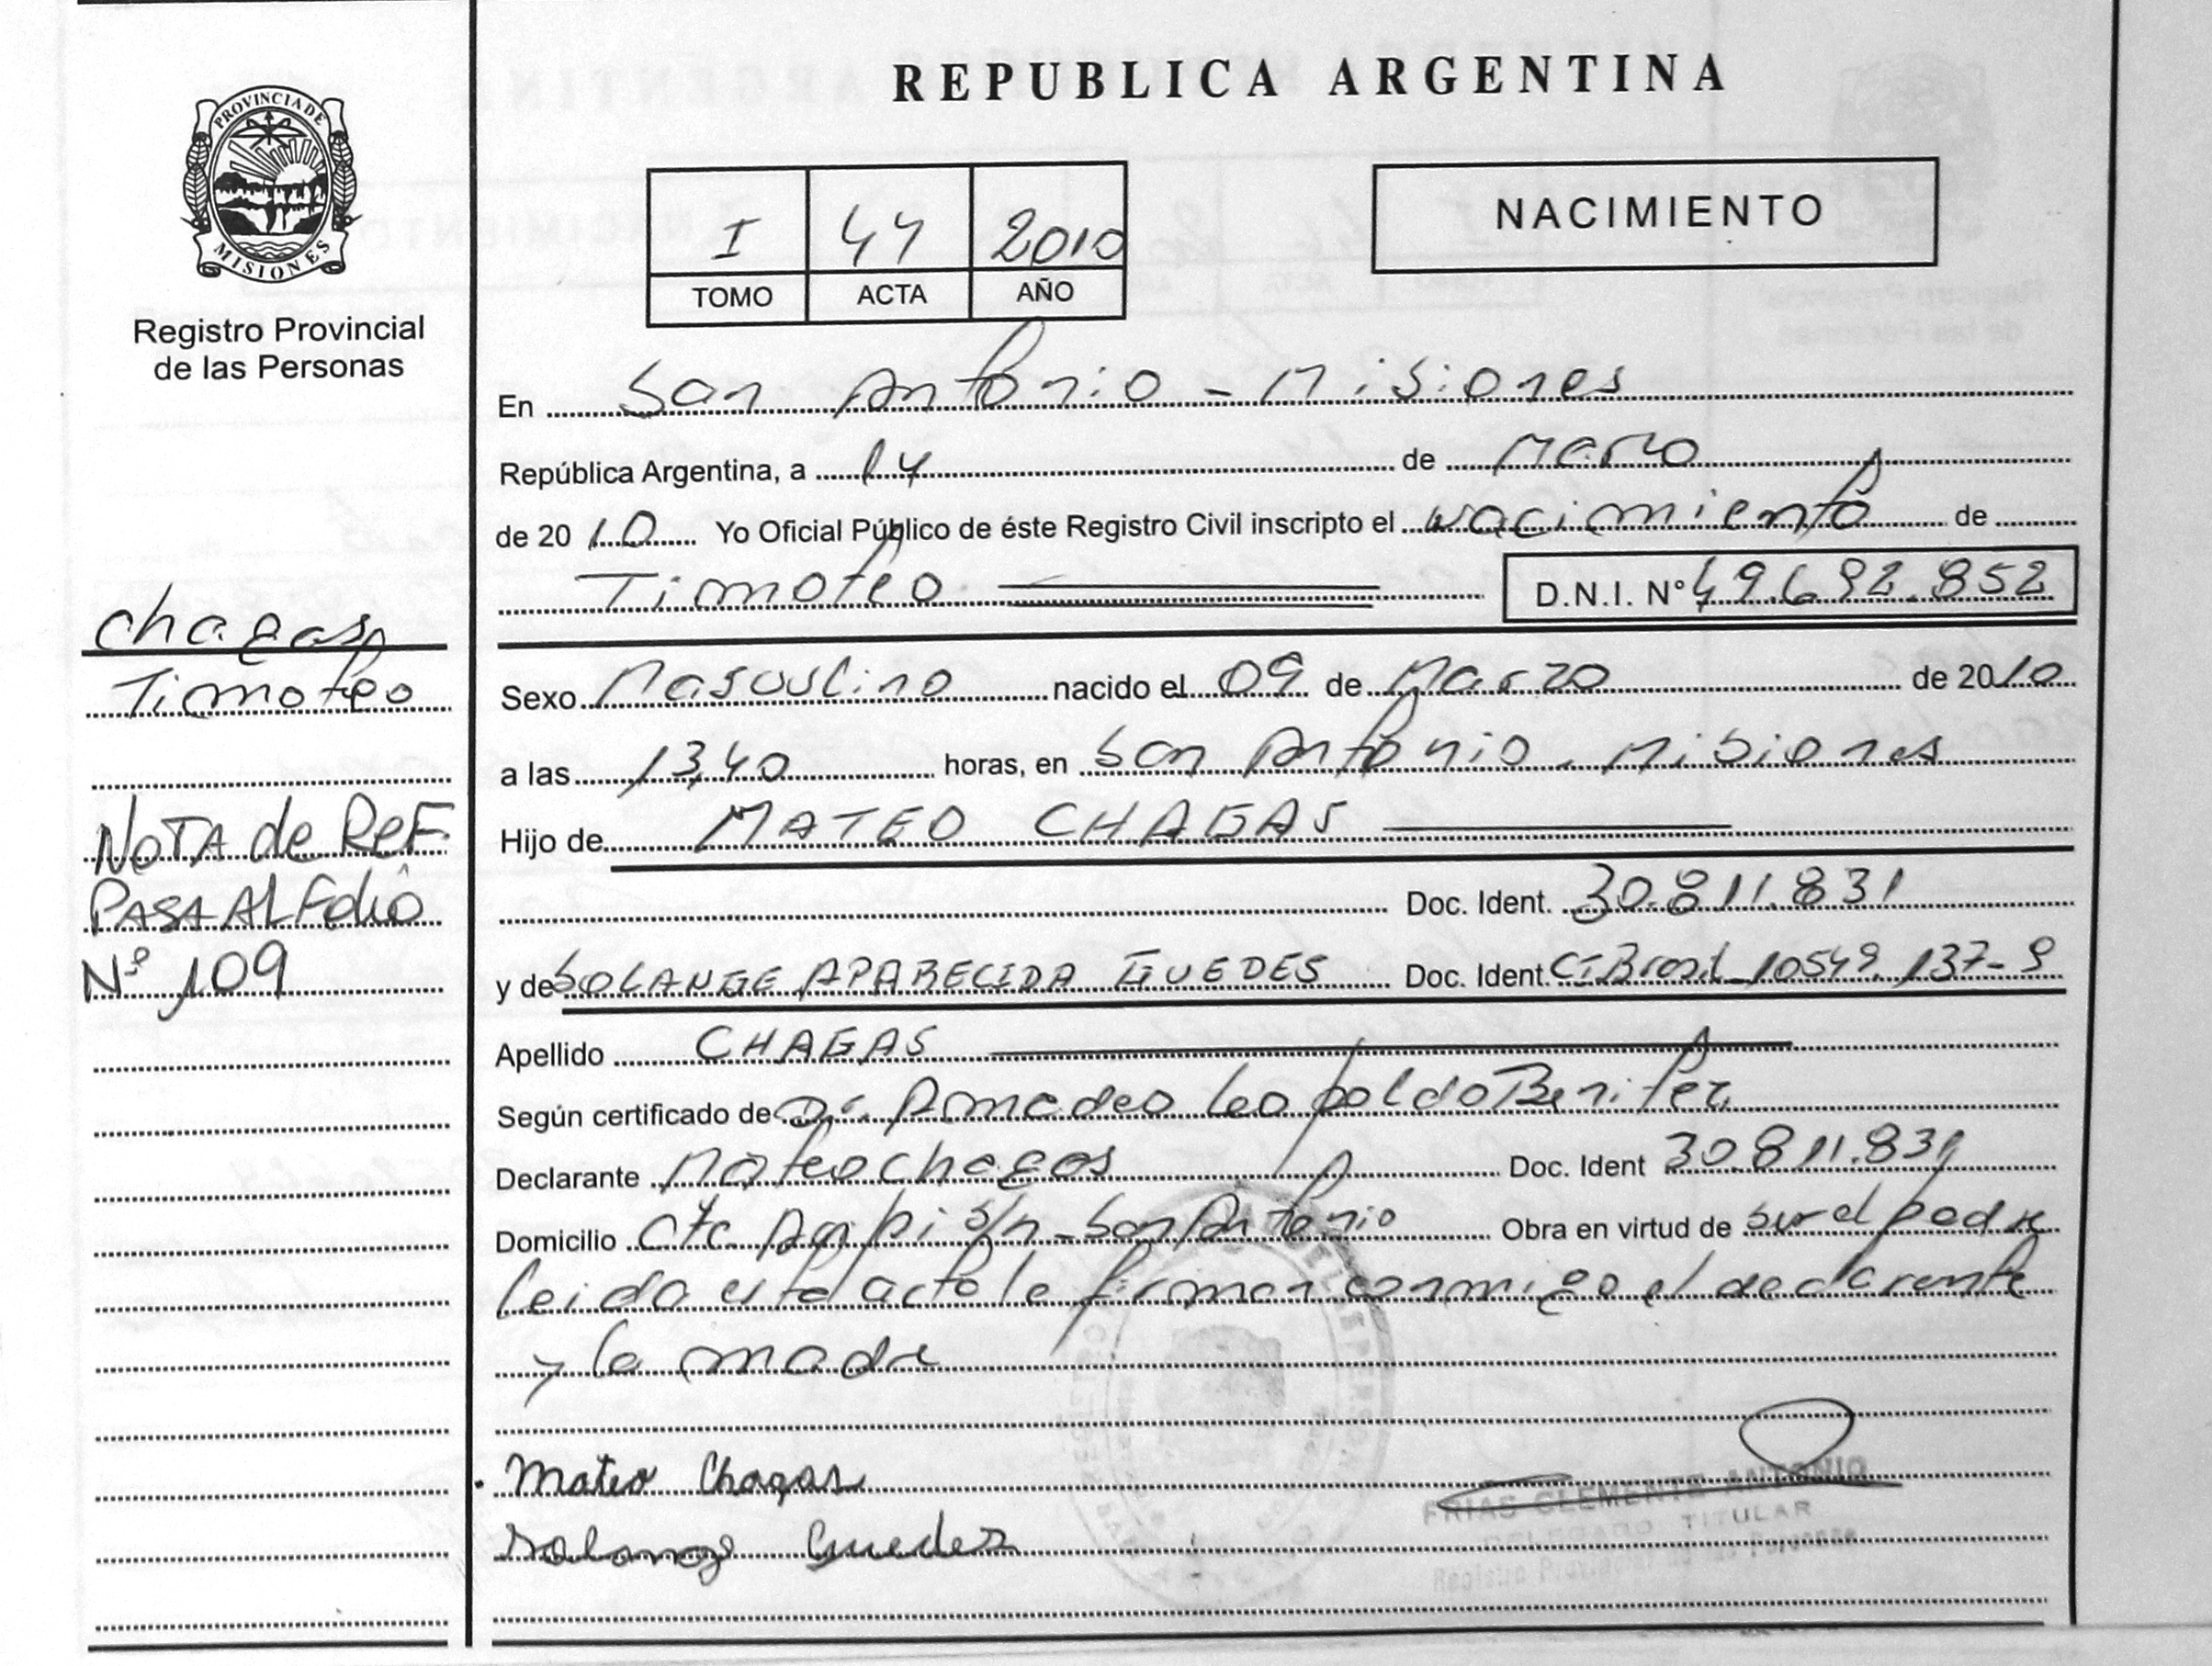 REPUBLICA ARGENTINA
PROVINCIA DE
MISIONES
Registro Provincial
de las Personas
I 44 2010
TOMO ACTA AÑO
NACIMIENTO
En San Antonio - Misiones
República Argentina, a 14 de Marzo
de 2010 Yo Oficial Público de éste Registro Civil inscripto el Nacimiento de
Timoteo D.N.I. Nº 49.692.852
Chagas
Timoteo
NOTA de ReF.
PASA AL Folio
Nº 109
Sexo Masculino nacido el 09 de Marzo de 2010
a las 13,40 horas, en San Antonio - Misiones
Hijo de MATEO CHAGAS
Doc. Ident. 30.811.831
y de SOLANGE APARECIDA GUEDES Doc. Ident. CI Brasil 10549.137-9
Apellido CHAGAS
Según certificado de Dr. Amadeo Leopoldo Benitez
Declarante Mateo Chagas Doc. Ident 30.811.831
Domicilio s/n - San Antonio Obra en virtud de ser el padre
leida esta acta la firman conmigo el declarante
y la madre
Mateo Chagas
Solange Guedes
FRIAS CLEMENTE ANTONIO
DELEGADO TITULAR
Registro Provincial de las Personas